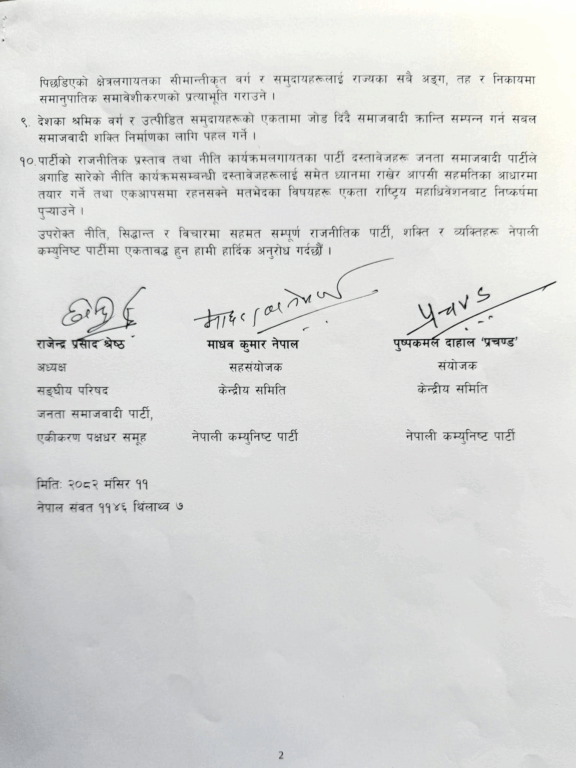 पिछडिएको क्षेत्रलगायतका सीमान्तीकृत वर्ग र समुदायहरूलाई राज्यका सबै अङ्ग, तह र निकायमा
समानुपातिक समावेशीकरणको प्रत्याभूति गराउने ।
९. देशका श्रमिक वर्ग र उत्पीडित समुदायहरूको एकतामा जोड दिदै समाजवादी क्रान्ति सम्पन्न गर्न सबल
समाजवादी शक्ति निर्माणका लागि पहल गर्ने ।
१०. पार्टीको राजनीतिक प्रस्ताव तथा नीति कार्यक्रमलगायतका पार्टी दस्तावेजहरू जनता समाजवादी पार्टीले
अगाडि सारेको नीति कार्यक्रमसम्बन्धी दस्तावेजहरूलाई समेत ध्यानमा राखेर आपसी सहमतिका आधारमा
तयार गर्ने तथा एकआपसमा रहनसक्ने मतभेदका विषयहरू एकता राष्ट्रिय महाधिवेशनबाट निष्कर्षमा
पुर्‍याउने ।
उपरोक्त नीति, सिद्धान्त र विचारमा सहमत सम्पूर्ण राजनीतिक पार्टी, शक्ति र व्यक्तिहरू नेपाली
कम्युनिष्ट पार्टीमा एकताबद्ध हुन हामी हार्दिक अनुरोध गर्दछौँ ।
प्रचण्ड
राजेन्द्र प्रसाद श्रेष्ठ माधव कुमार नेपाल पुष्पकमल दाहाल 'प्रचण्ड'
अध्यक्ष सहसंयोजक संयोजक
सङ्घीय परिषद केन्द्रीय समिति केन्द्रीय समिति
जनता समाजवादी पार्टी,
एकीकरण पक्षधर समूह नेपाली कम्युनिष्ट पार्टी नेपाली कम्युनिष्ट पार्टी
मितिः २०८२ मंसिर ११
नेपाल संवत ११४६ थिंलाथ्व ७
2